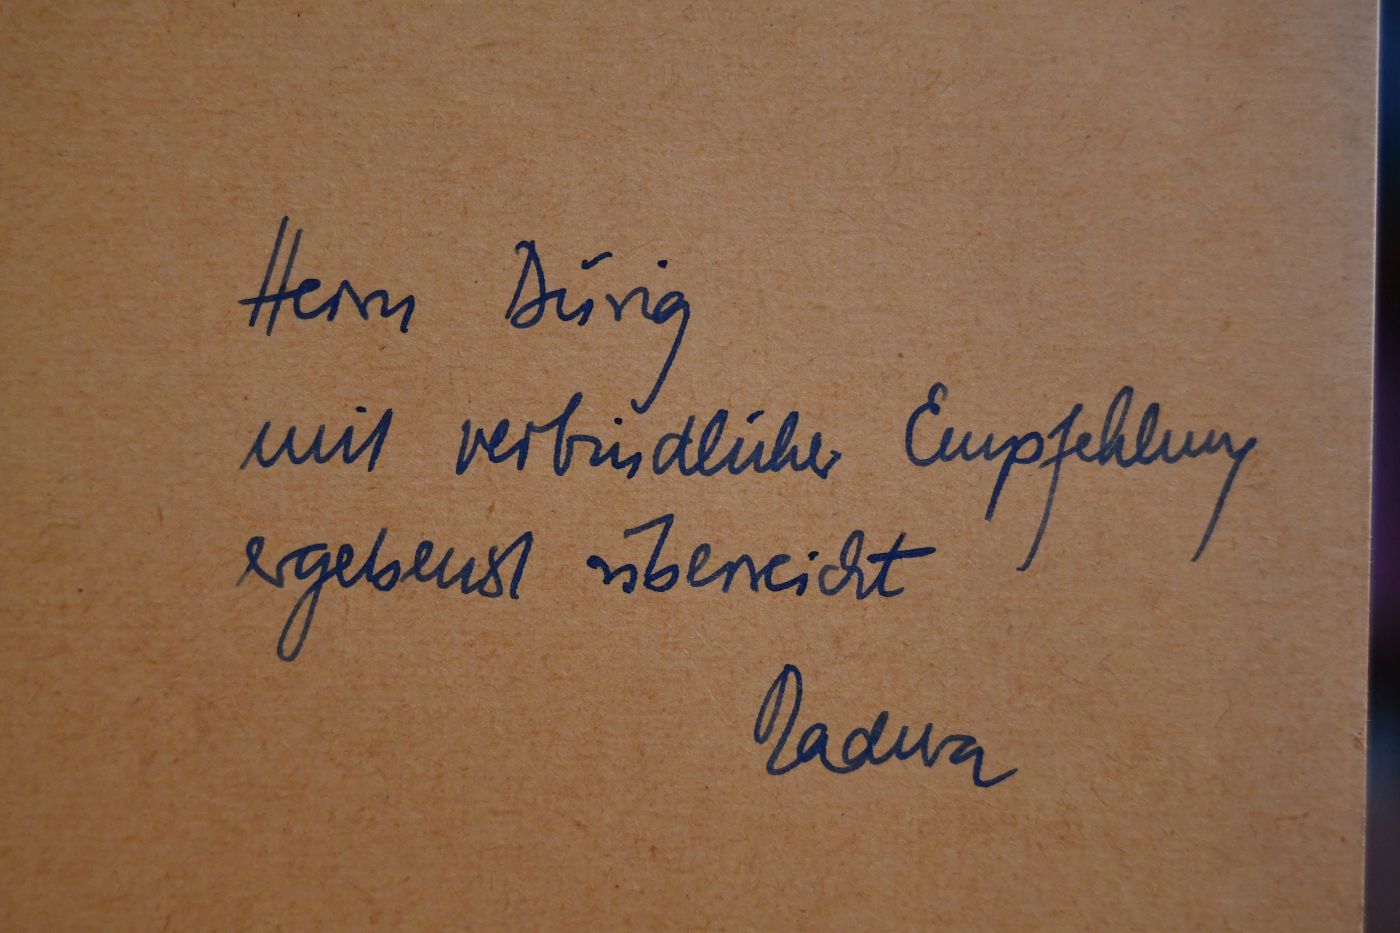 Herrn Dürig
mit verbindlicher Empfehlung
ergebenst überreicht